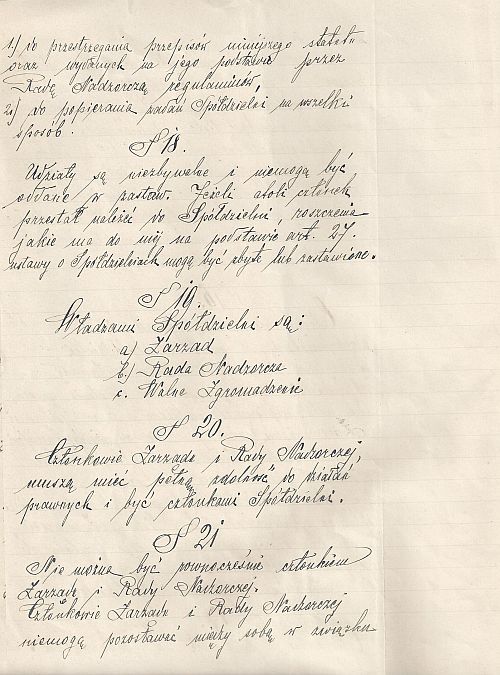 1.) do przestrzegania przepisów niniejszego statutu
oraz wydanych na jego podstawie przez
Radę Nadzorczą regulaminów,
2.) do popierania zadań Spółdzielni na wszelki
sposób.
§ 18.
Udziały są niezbywalne i niemogą być
oddane w zastaw. Jeżeli atoli członek
przestał należeć do Spółdzielni, roszczenia
jakie ma do niej na podstawie art. 27.
ustawy o Spółdzielniach mogą być zbyte lub zastawione.
§ 19.
Władzami Spółdzielni są:
a) Zarząd
b.) Rada Nadzorcza
c. Walne Zgromadzenie
§ 20.
Członkowie Zarządu i Rady Nadzorczej
muszą mieć pełną zdolność do działań
prawnych i być członkami Spółdzielni.
§ 21
Nie można być równocześnie członkiem
Zarządu i Rady Nadzorczej.
Członkowie Zarządu i Rady Nadzorczej
niemogą pozostawać między sobą w związku